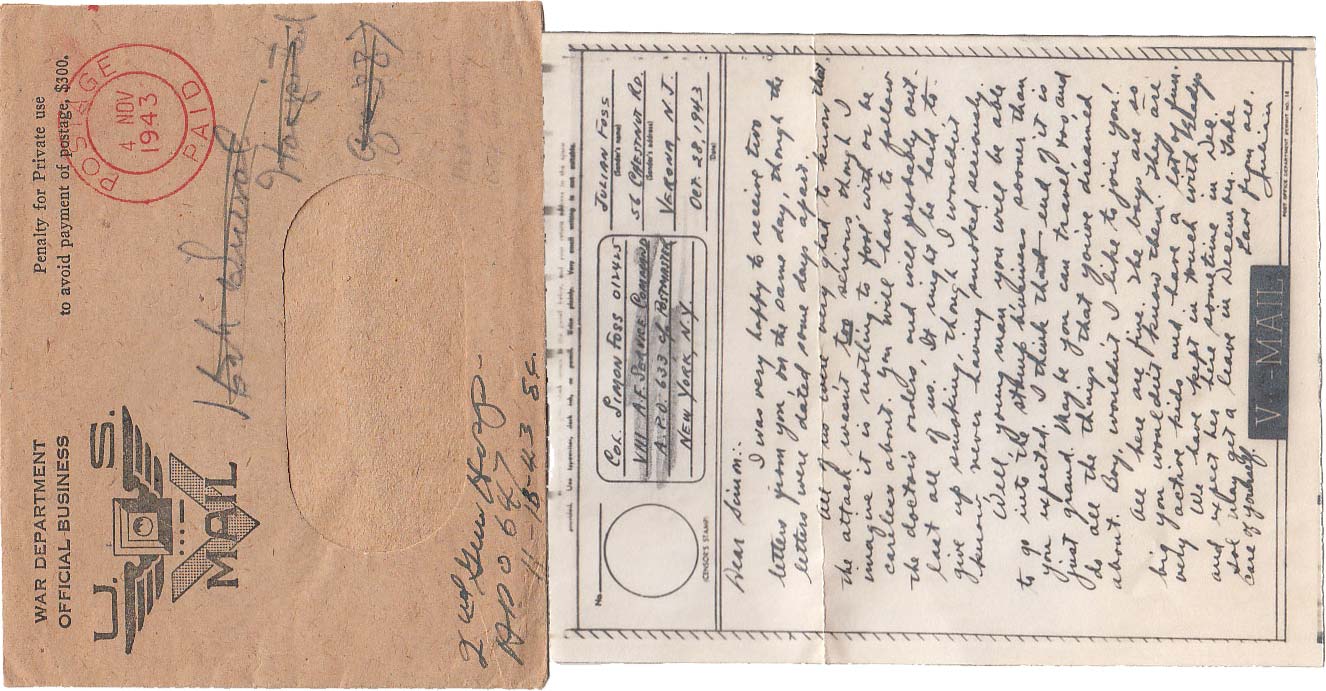 WAR DEPARTMENT
OFFICIAL BUSINESS
Penalty for Private use
to avoid payment of postage, $300.
U. S.
MAIL
POSTAGE
4 NOV
1943
PAID
Hospital
2nd Gen Hosp
APO 647
11-18-43
provided. Use typewriter, dark ink, or pencil. Write plainly. Very small writing is not suitable.
No.
(CENSOR'S STAMP)
COL. SIMON FOSS OLIVIS
VIII A.F. SERVICE COMMAND
A.P.O. 633 c/o POSTMASTER
NEW YORK, N.Y.
JULIAN FOSS
(Sender's name)
56 CHESTNUT RD.
(Sender's address)
VERONA, N.J.
OCT. 28, 1943
(Date)
Dear Simon:
I was very happy to receive two
letters from you on the same day, though the
letters were dated some days apart.
All of us were very glad to know that
the attack wasn't too serious though I
imagine it is nothing to fool with or be
careless about. You will have to follow
the doctor's orders and will probably out-
last all of us. It might be hard to
give up smoking, though I wouldn't
know never having smoked seriously.
Well, young man you will be able
to go into the strump business sooner than
you expected. I think that end of it is
just grand. May be you can travel now and
do all the things that you've dreamed
about. Boy, wouldn't I like to join you!
All here are fine. The boys are so
big you wouldn't know them. They are
very active kids and have a lot of fun.
We have kept in touch with Gladys
and expect her here sometime in Dec.
Sol may get a leave in December. Take
care of yourself.
Love from all.
Julian
V···-MAIL
POST OFFICE DEPARTMENT PERMIT NO. 16